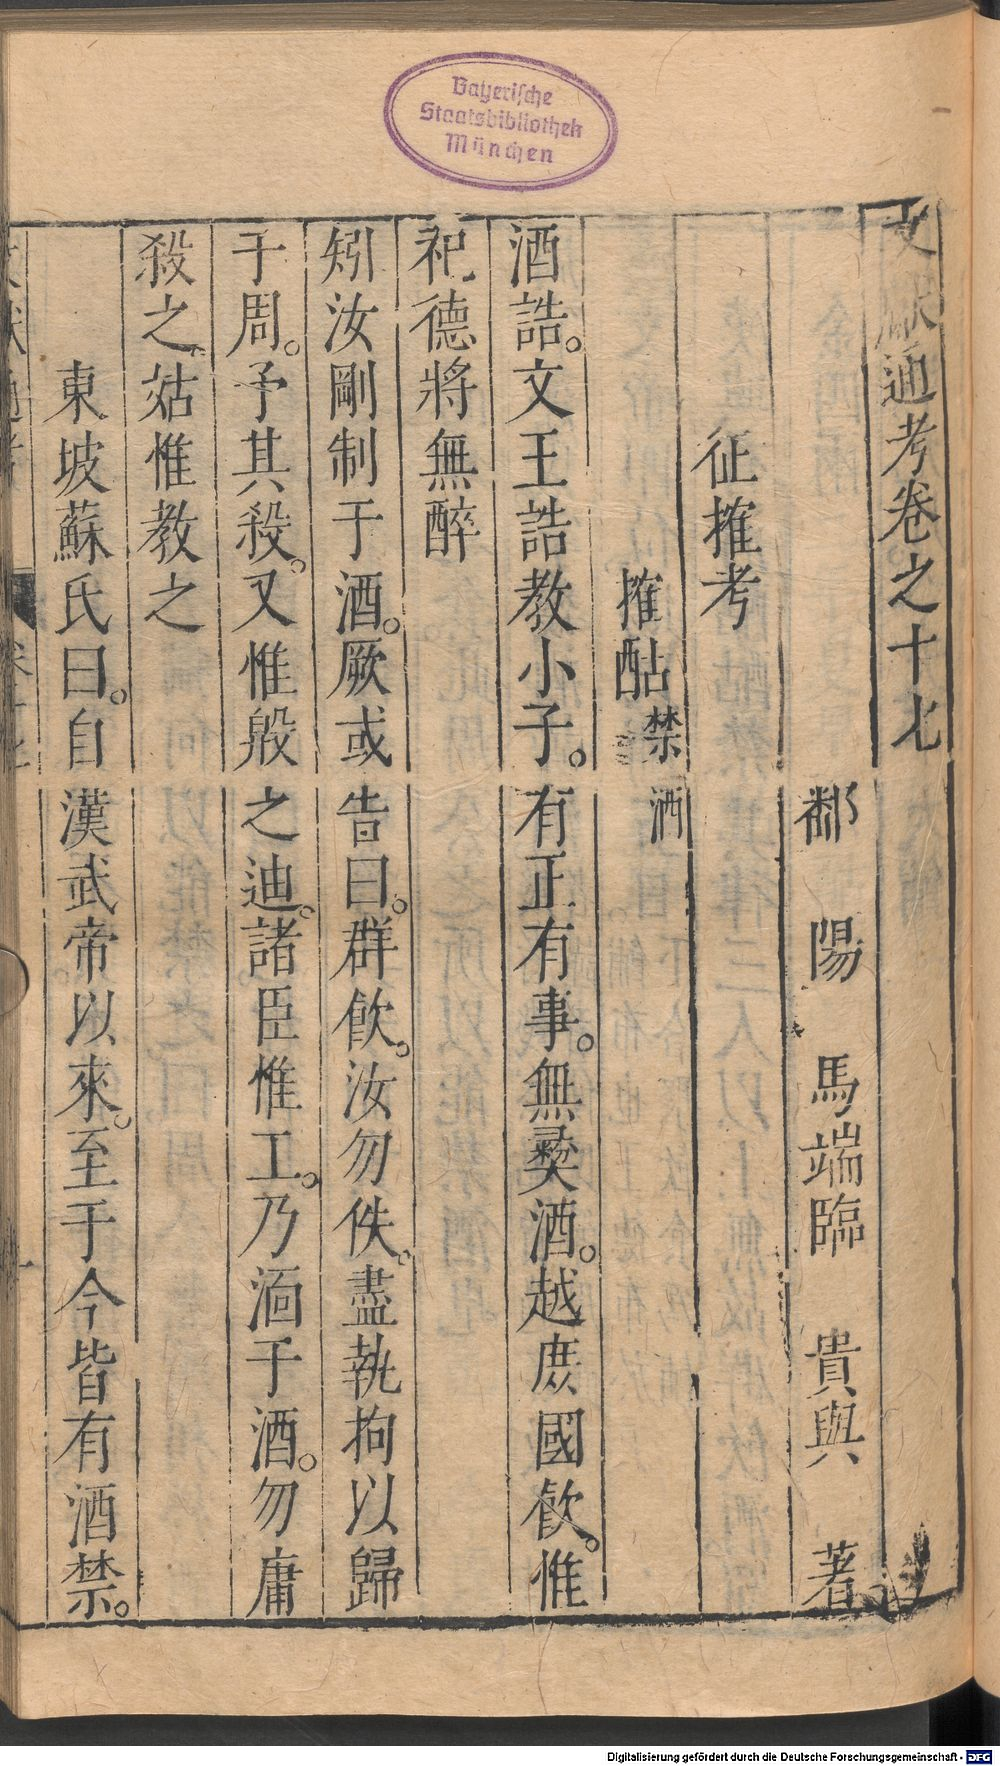 Bayerische
Staatsbibliothek
München
文獻通考卷之十七
鄱陽 馬端臨 貴與 著
征搉考
搉酤禁酒
酒誥。文王誥教小子。有正有事。無彝酒。越庶國飮。惟
祀德將無醉
矧汝剛制于酒。厥或告曰。群飮。汝勿佚。盡執拘以歸
于周。予其殺。又惟殷之迪。諸臣惟工。乃湎于酒。勿庸
殺之。姑惟教之
東坡蘇氏曰。自漢武帝以來。至于今皆有酒禁。
Digitalisierung gefördert durch die Deutsche Forschungsgemeinschaft - DFG